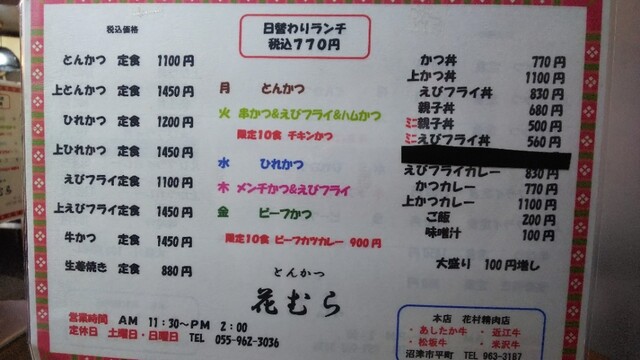 税込価格
とんかつ 定食 1100円
上とんかつ 定食 1450円
ひれかつ 定食 1200円
上ひれかつ 定食 1450円
えびフライ定食 1100円
上えびフライ定食 1450円
牛かつ 定食 1450円
生姜焼き 定食 880円
営業時間 AM 11:30~PM 2:00
定休日 土曜日・日曜日 TEL 055-962-3036
日替わりランチ
税込770円
月 とんかつ
火 串かつ&えびフライ&ハムかつ
限定10食 チキンかつ
水 ひれかつ
木 メンチかつ&えびフライ
金 ビーフかつ
限定10食 ビーフカツカレー 900円
とんかつ
花むら
かつ丼 770円
上かつ丼 1100円
えびフライ丼 830円
親子丼 680円
ミニ親子丼 500円
ミニえびフライ丼 560円
えびフライカレー 830円
かつカレー 770円
上かつカレー 1100円
ご飯 200円
味噌汁 100円
大盛り 100円増し
本店 花村精肉店
・あしたか牛 ・近江牛
・松坂牛 ・米沢牛
沼津市平町 TEL 963-3187